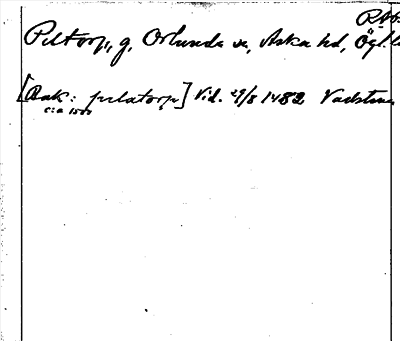 RAp
Piltorp, g, Orlunda sn, Aska hd, Ögl.
[Bak: pelatorp] Vid. 29/8 1482 Vadstena
c:a 1500